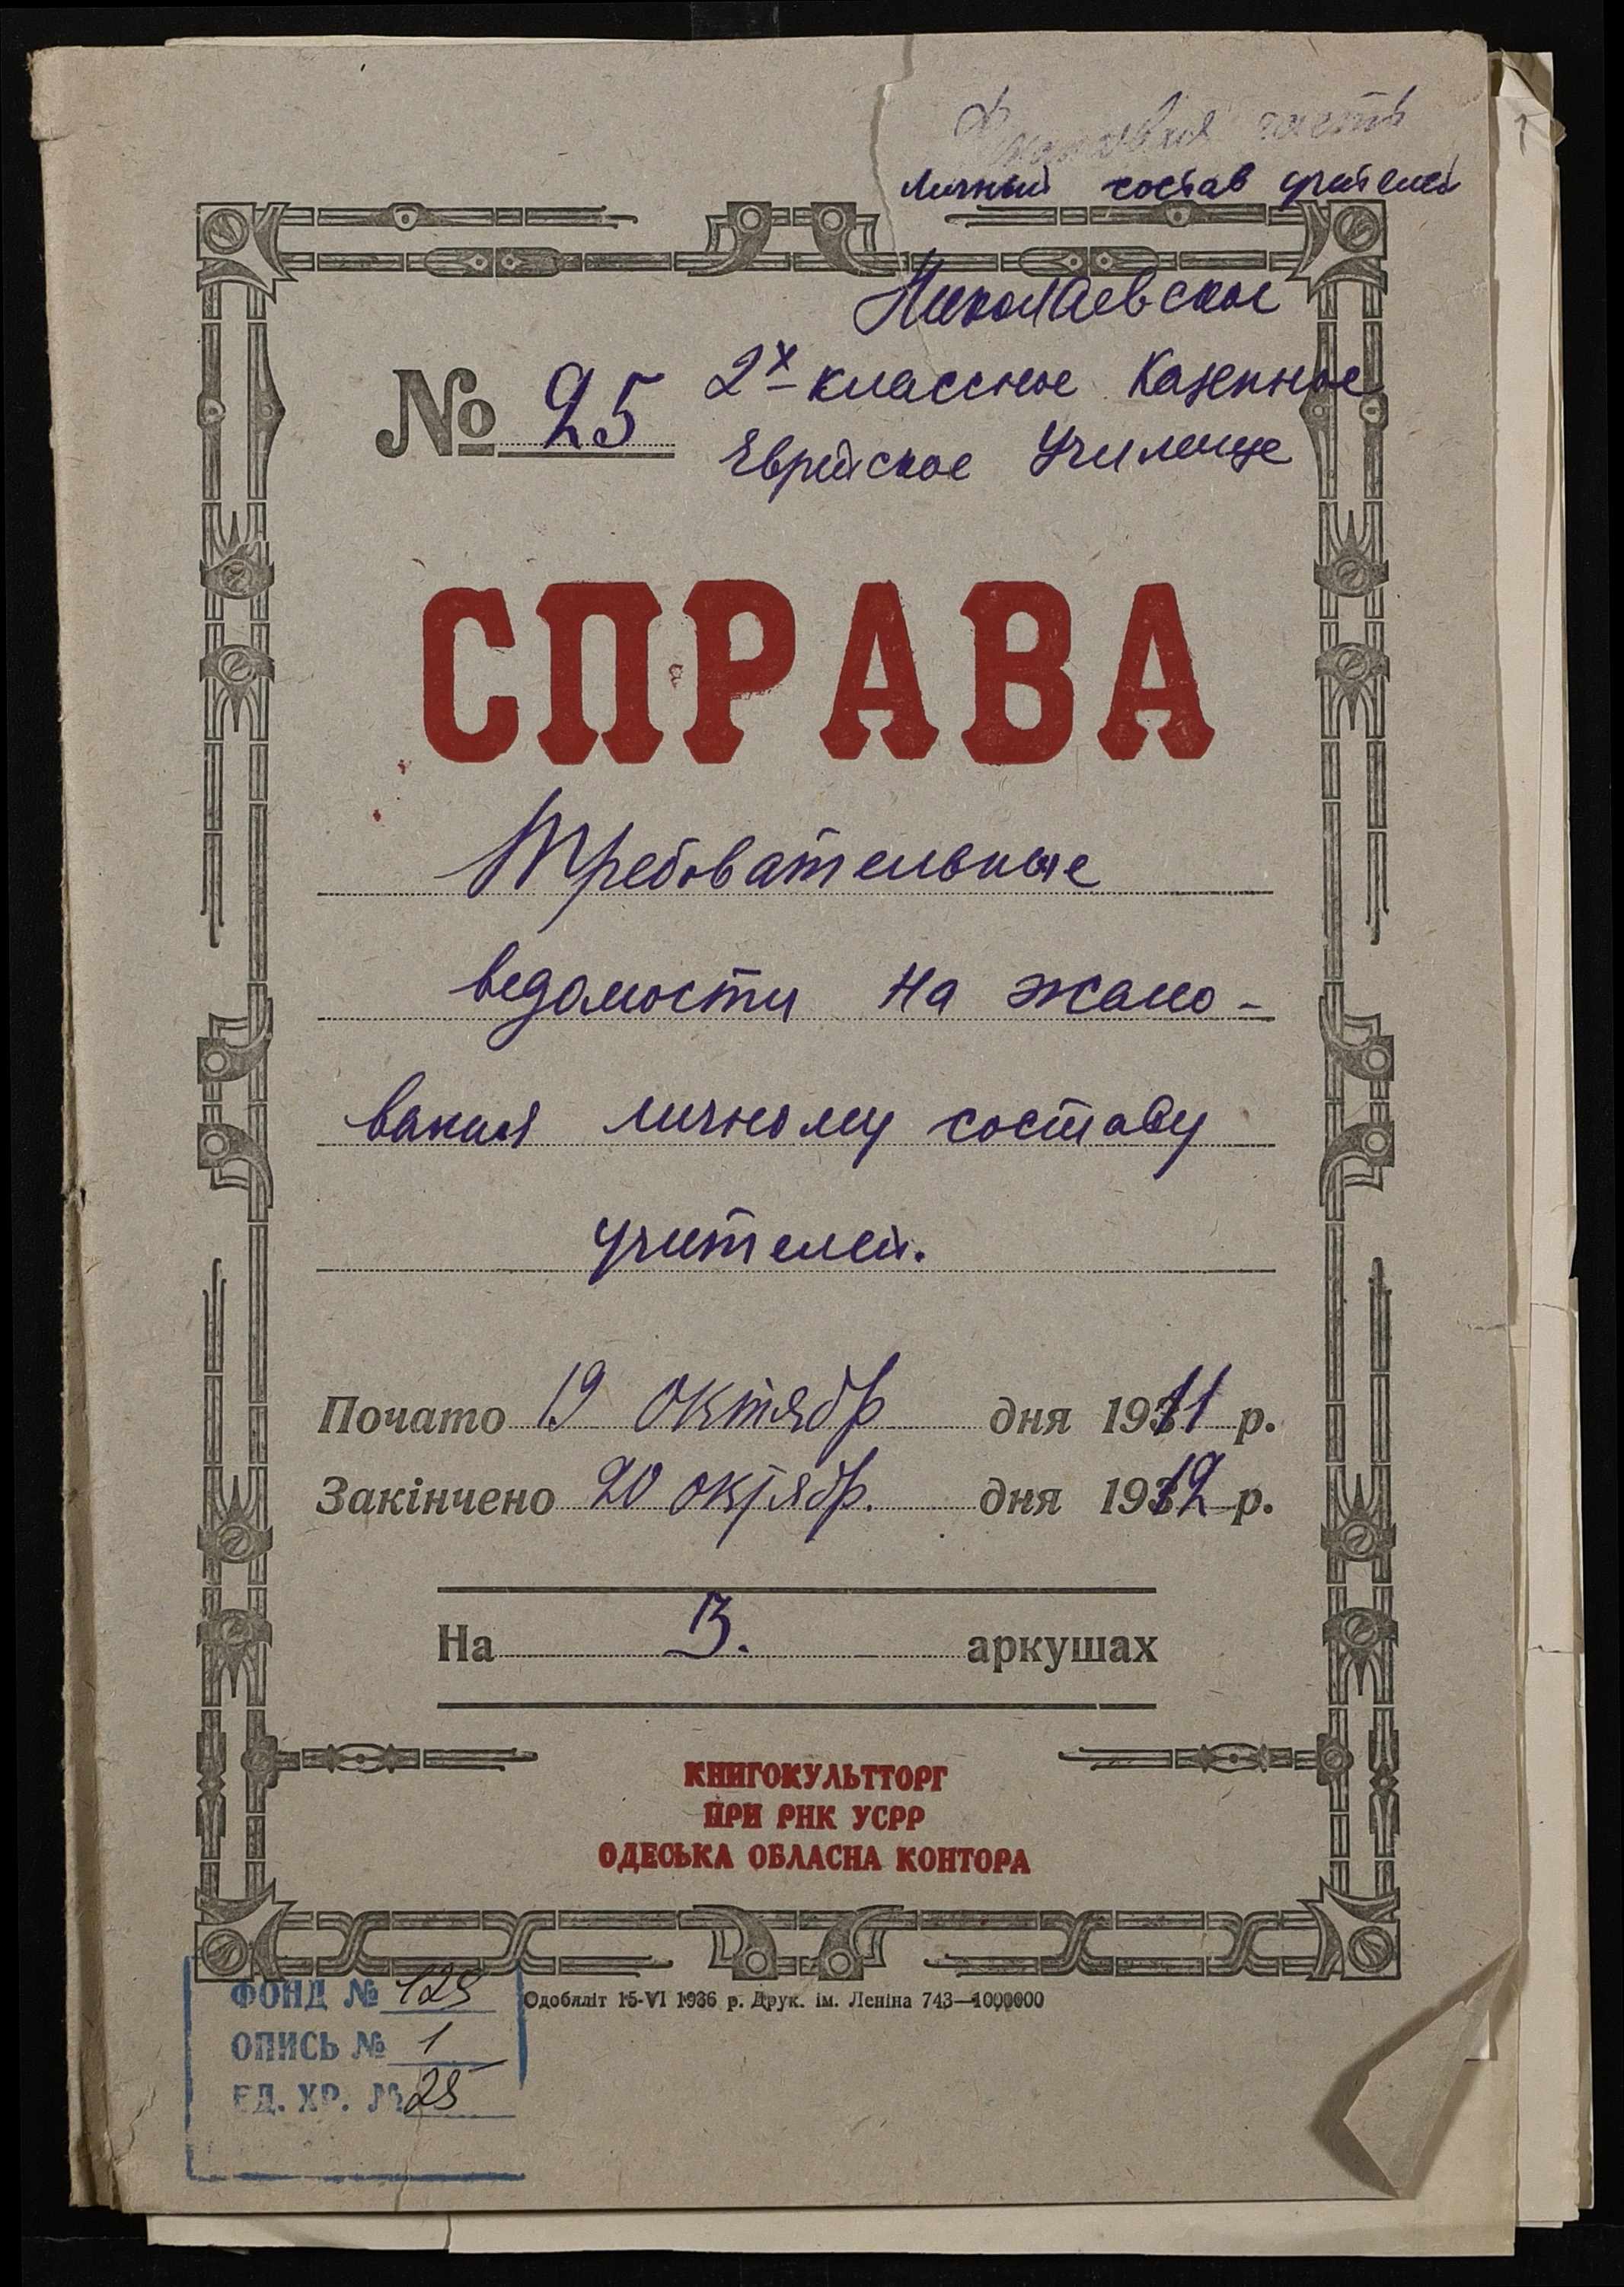 часть
личный состав учителей
Николаевское
№ 25 2х-классное Казенное
Еврейское Училище
СПРАВА
Требовательные
ведомости на жало-
вания личному составу
учителей.
Почато 19 октябр дня 1911 р.
Закінчено 20 октябр. дня 1912 р.
На 3. аркушах
КНИГОКУЛЬТТОРГ
ПРИ РНК УСРР
ОДЕСЬКА ОБЛАСНА КОНТОРА
Одобяліт 15-VI 1936 р. Друк. ім. Леніна 743—1000000
ФОНД № 125
ОПИСЬ № 1
ЕД. ХР. № 25